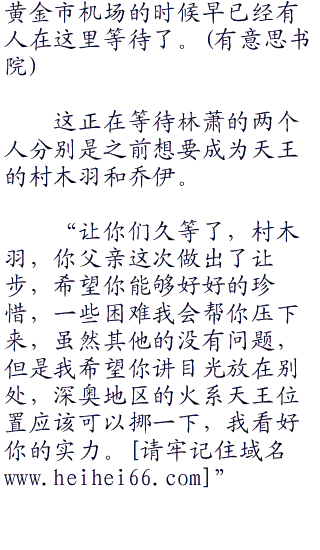 黄金市机场的时候早已经有
人在这里等待了。(有意思书
院)
这正在等待林萧的两个
人分别是之前想要成为天王
的村木羽和乔伊。
“让你们久等了，村木
羽，你父亲这次做出了让
步，希望你能够好好的珍
惜，一些困难我会帮你压下
来，虽然其他的没有问题，
但是我希望你讲目光放在别
处，深奥地区的火系天王位
置应该可以挪一下，我看好
你的实力。[请牢记住域名
www.heihei66.com]”